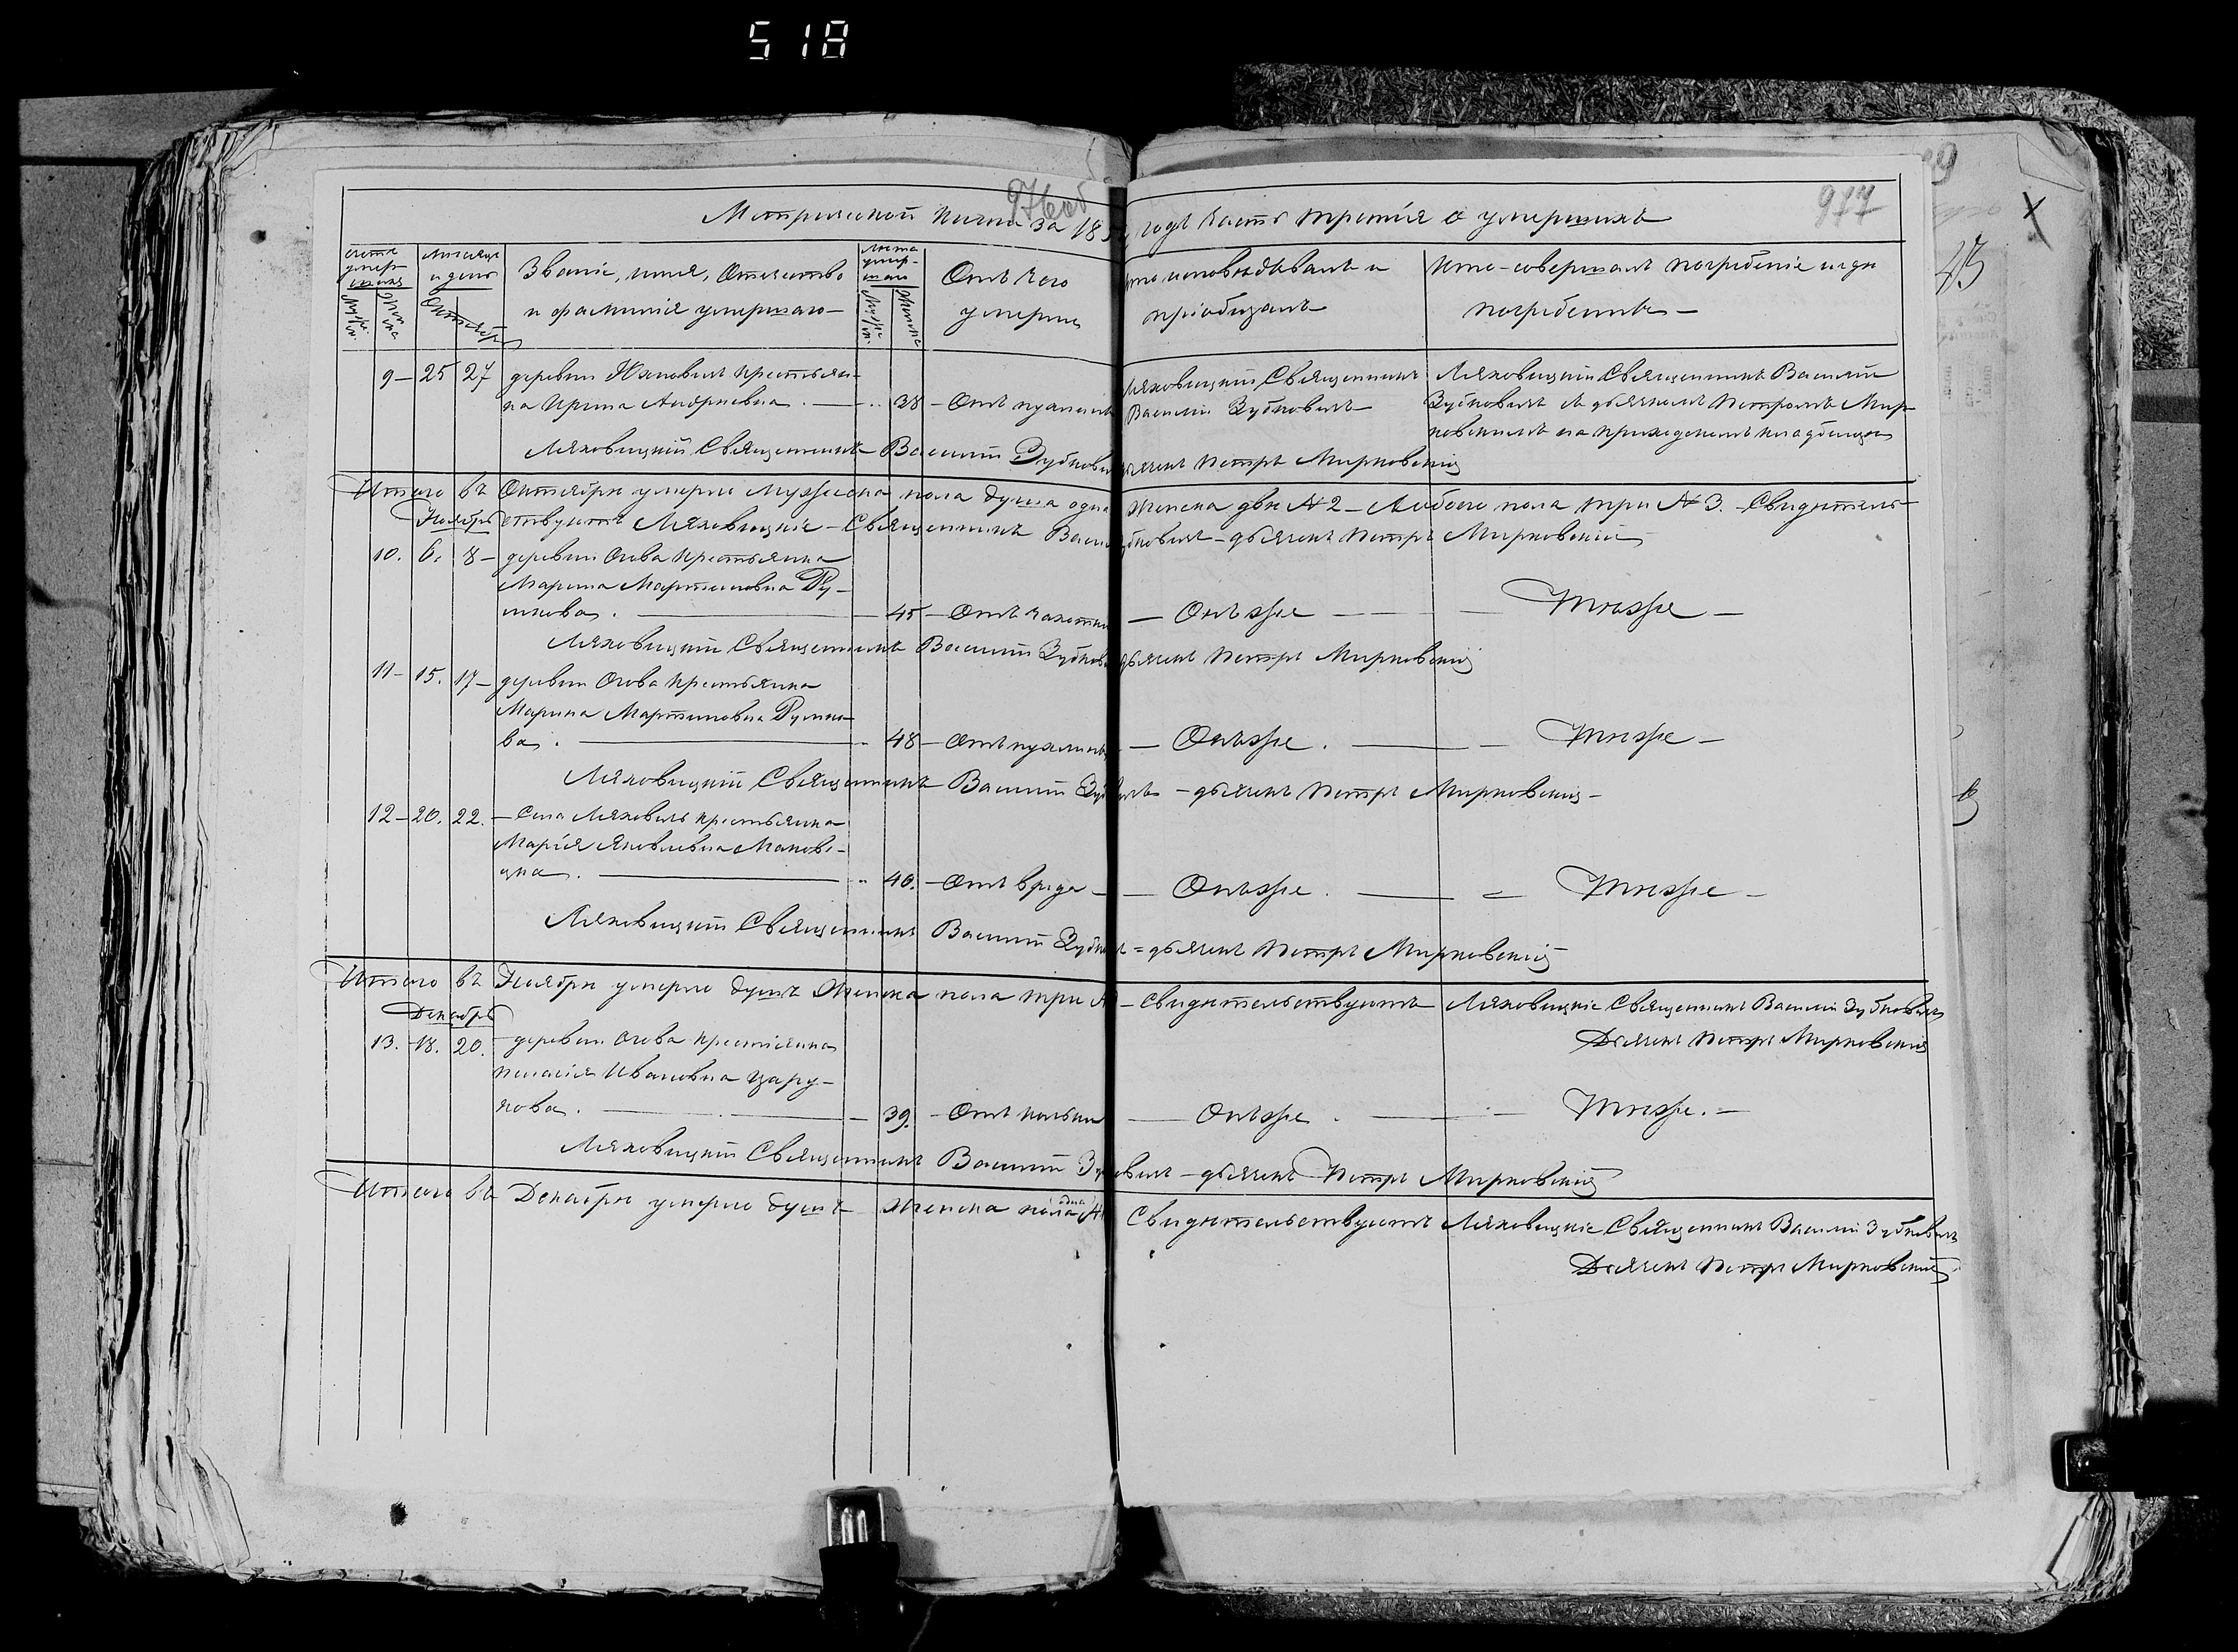 518
976 об
977
Метрической книги за 18 годъ часть третія о умершихъ
49
Счетъ умершихъ
Мужеска
Женска
Мѣсяцъ и день
Октябрь
Званіе, имя, отчество
и фамилія умершаго
Лѣта умершаго
Мужеска
Женска
Отъ чего
умерли
Кто исповѣдывалъ и
пріобщалъ
Кто совершалъ погребеніе и гдѣ
погребены
9 – 25 27 деревни крестьян-
ка Ирина Андреевна. — 38 – Отъ
Ляховицкій Священникъ
Василій Зубковичъ
Ляховицкій Священникъ Василій
Зубковичъ съ дьячкомъ Петромъ Мир-
ковскимъ на приходскомъ кладбищѣ
Ляховицкій Священникъ Василій Зубкови дьячекъ Петръ Мирковскій
Итого въ Октябрѣ умерло мужеска пола душа одна женска двѣ № 2 – Обоего пола три № 3. – Свидѣтель-
Ноябрь
ствуютъ Ляховицкіе – Священникъ Васи убковичъ – дьячекъ Петръ Мирковскій
10. 6. 8 – деревни Осова крестьянка
Марина Мартиновна Ру-
шкова. — 45 – Отъ чахотки — Онъ же — — Тѣже –
Ляховицкій Священникъ Василій Зубков дьячекъ Петръ Мирковскій
11 – 15. 17 – деревни Осова крестьянка
Марина Мартиновна
ва. — 48 – Отъ — Онъ же. — — Тѣже –
Ляховицкій Священникъ Василій Зуб ичъ – дьячекъ Петръ Мирковскій –
12 – 20. 22. – Села Ляховичъ крестьянка
Марія Яковлевна Маков-
цка. — 40. – Отъ вреда – — Онъ же. — = Тѣже –
Ляховицкій Священникъ Василій Зубков = дьячекъ Петръ Мирковскій
Итого въ Ноябрѣ умерло душъ женска пола три № – Свидѣтельствуютъ Ляховицкіе Священникъ Василій Зубковичъ
Дьячекъ Петръ Мирковскій
Декабрь
13. 18. 20. – деревни Осова крестіянка
Пелагія Ивановна Цару-
кова. — 39. – Отъ кольки — Онъ же. — Тѣже. –
Ляховицкій Священникъ Василій Зу овичъ – дьячекъ Петръ Мирковскій
Итого въ Декабрѣ умерло душъ женска пола одна № Свидѣтельствуютъ Ляховицкіе Священникъ Василій Зубковичъ
Дьячекъ Петръ Мирковскій